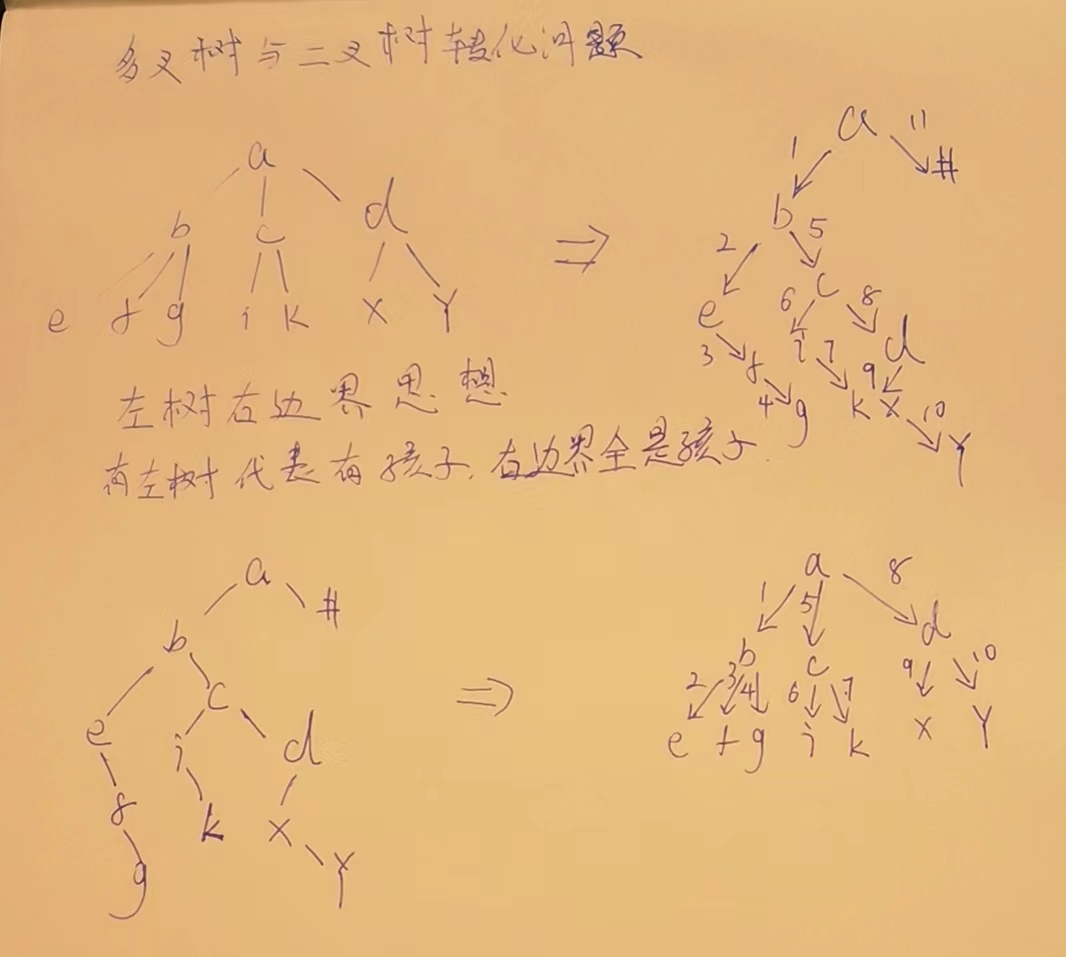 多叉树与二叉树转化问题
a
b c d
e f g i k x Y
⇒
a
1 11
b #
2 5
e c
3 6 8
f i 7 d
4 9
g k x 10
Y
左树右边界思想
有左树代表有孩子,右边界全是孩子.
a
b #
e c
i d
f k x
g Y
⇒
a
1 5 8
b c d
2 3 4 6 7 9 10
e f g i k x Y